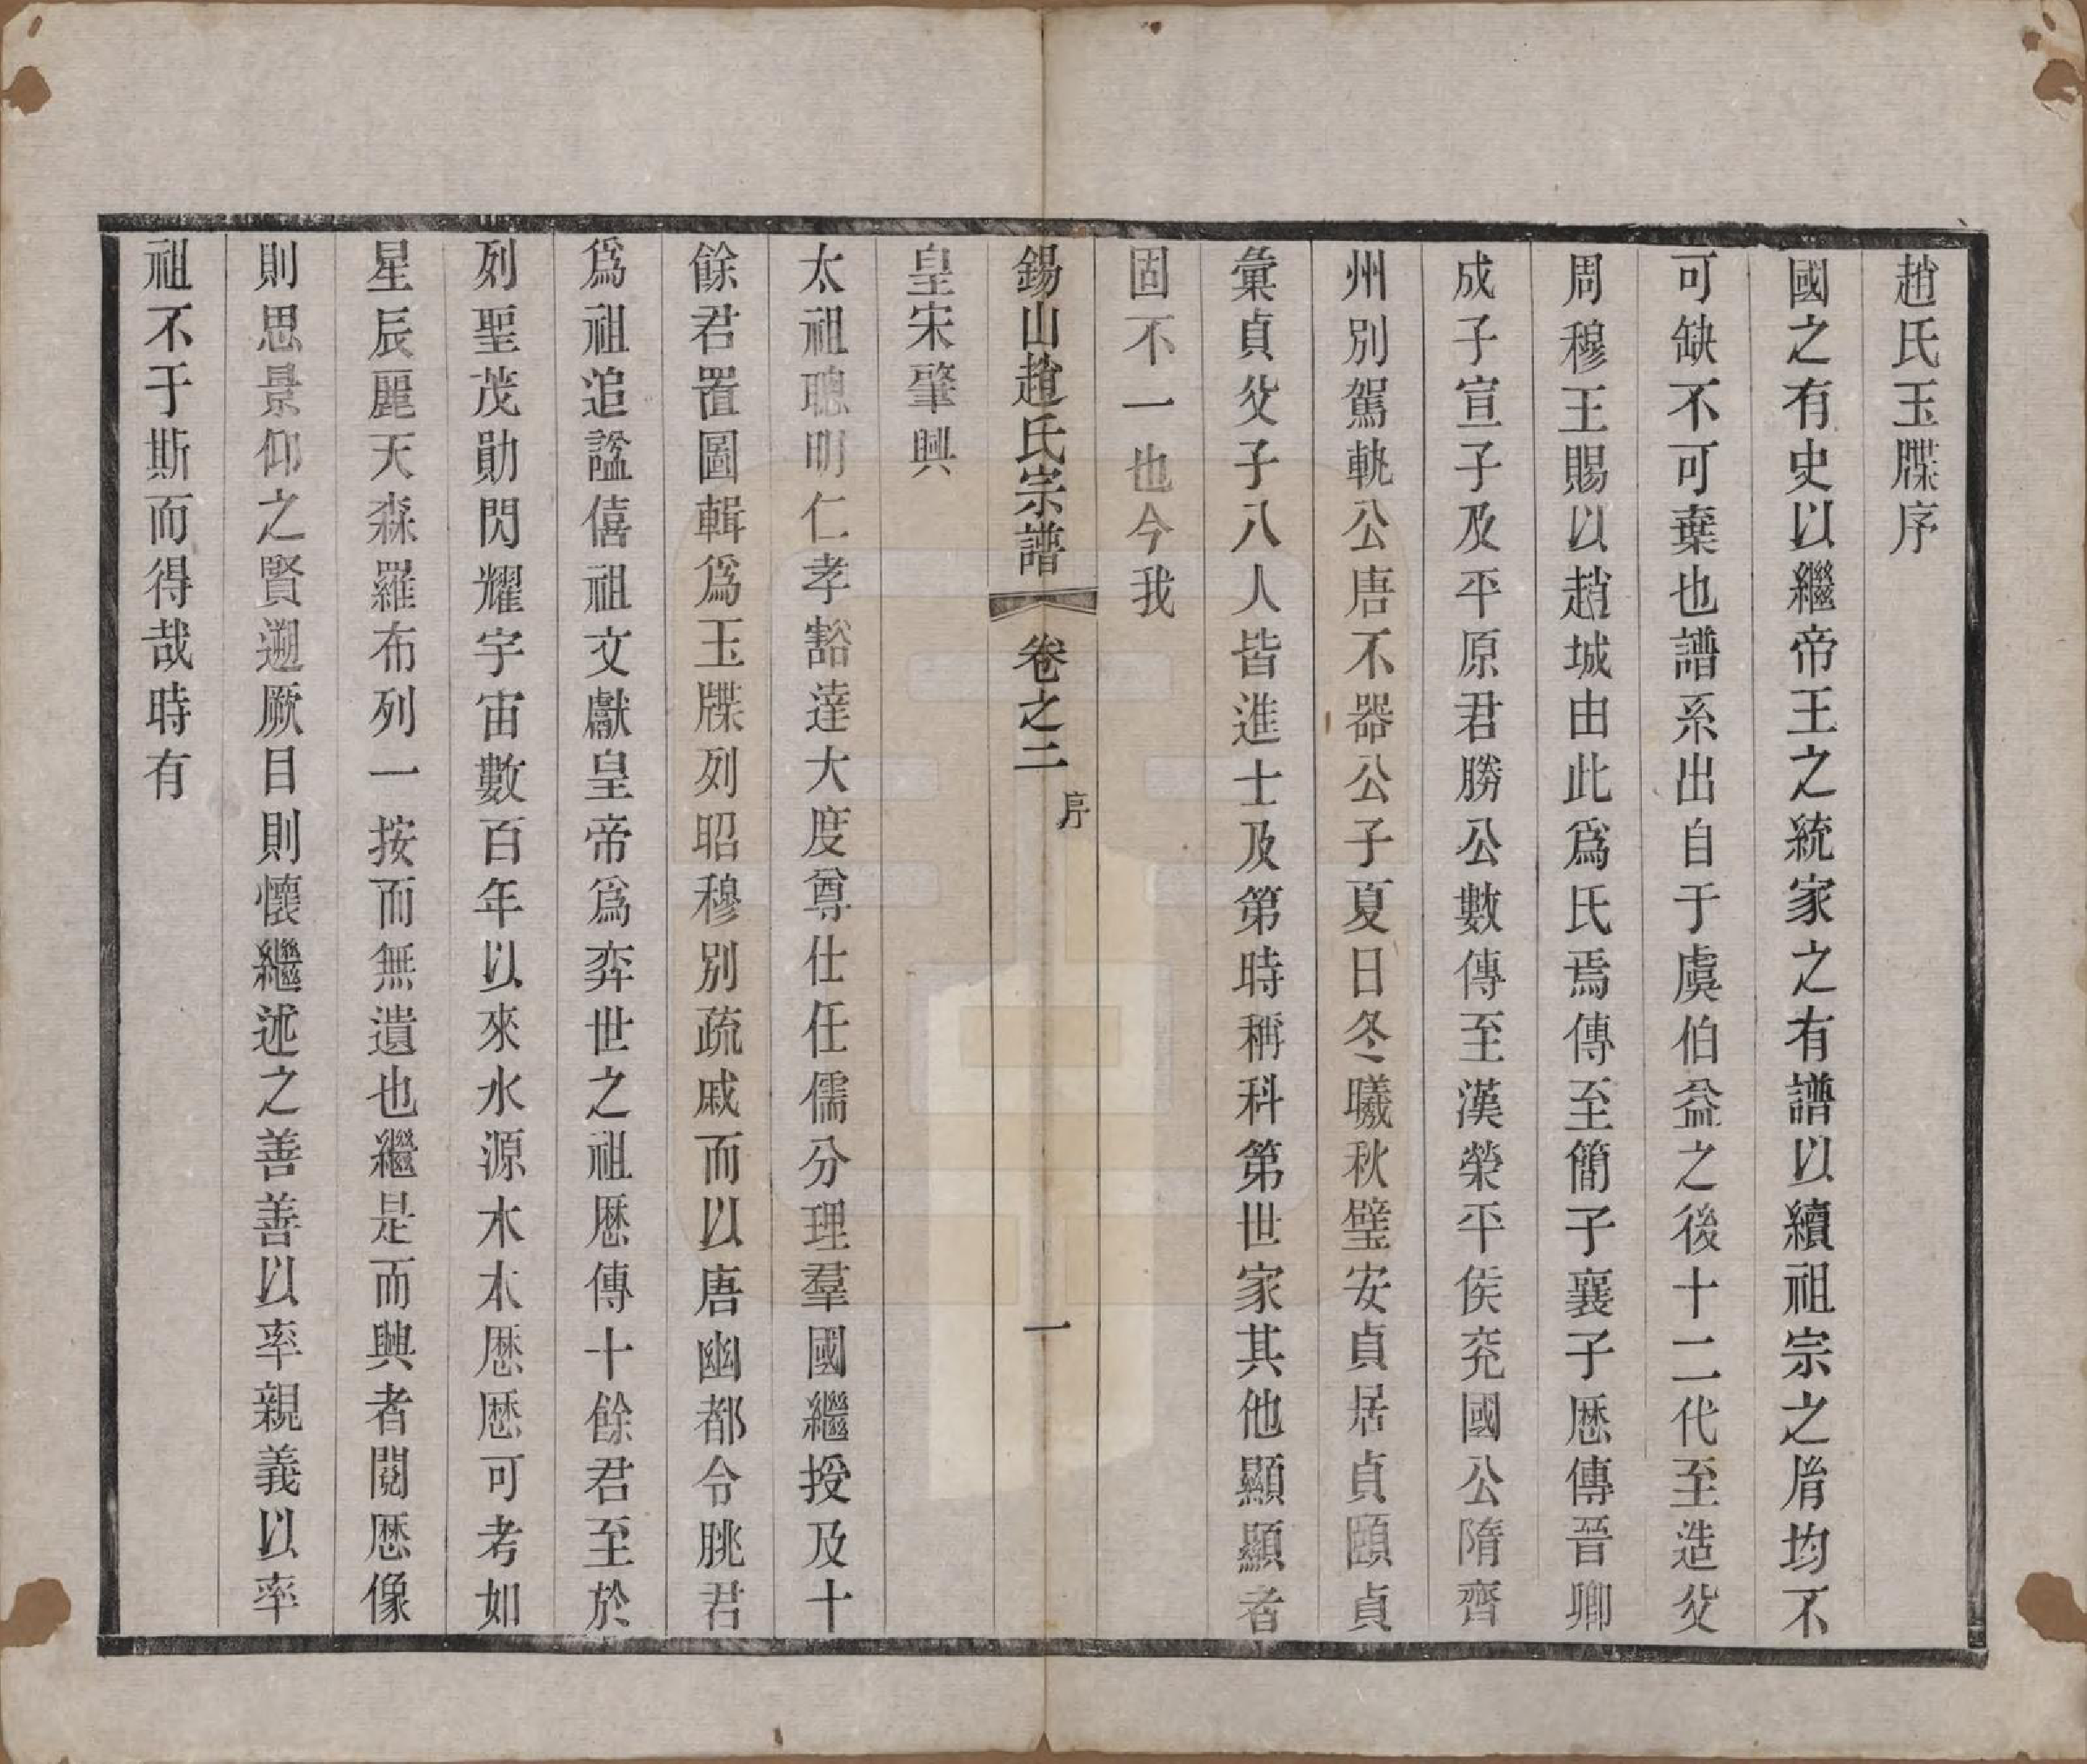 趙氏玉牒序
國之有史以繼帝王之統家之有譜以續祖宗之脗均不
可缺不可棄也譜系出自于虞伯益之後十二代至造父
周穆王賜以趙城由此爲氏焉傳至簡子襄子歷傳晉卿
成子宣子及平原君勝公數傳至漢榮平侯充國公隋齊
州別駕軌公唐不器公子夏日冬曦秋璧安貞居貞頤貞
彙貞父子八人皆進士及第時稱科第世家其他顯顯者
固不一也今我
錫山趙氏宗譜 卷之二 序 一
皇宋肇興
太祖聰明仁孝豁達大度尊仕任儒分理羣國繼授及十
餘君置圖輯爲玉牒列昭穆別疏戚而以唐幽都令朓君
爲祖追謚僖祖文獻皇帝爲弈世之祖歷傳十餘君至於
列聖茂勛閃耀宇宙數百年以來水源木本歷歷可考如
星辰麗天森羅布列一按而無遺也繼是而興者閱歷像
則思景仰之賢遡厥目則懷繼述之善善以率親義以率
祖不于斯而得哉時有